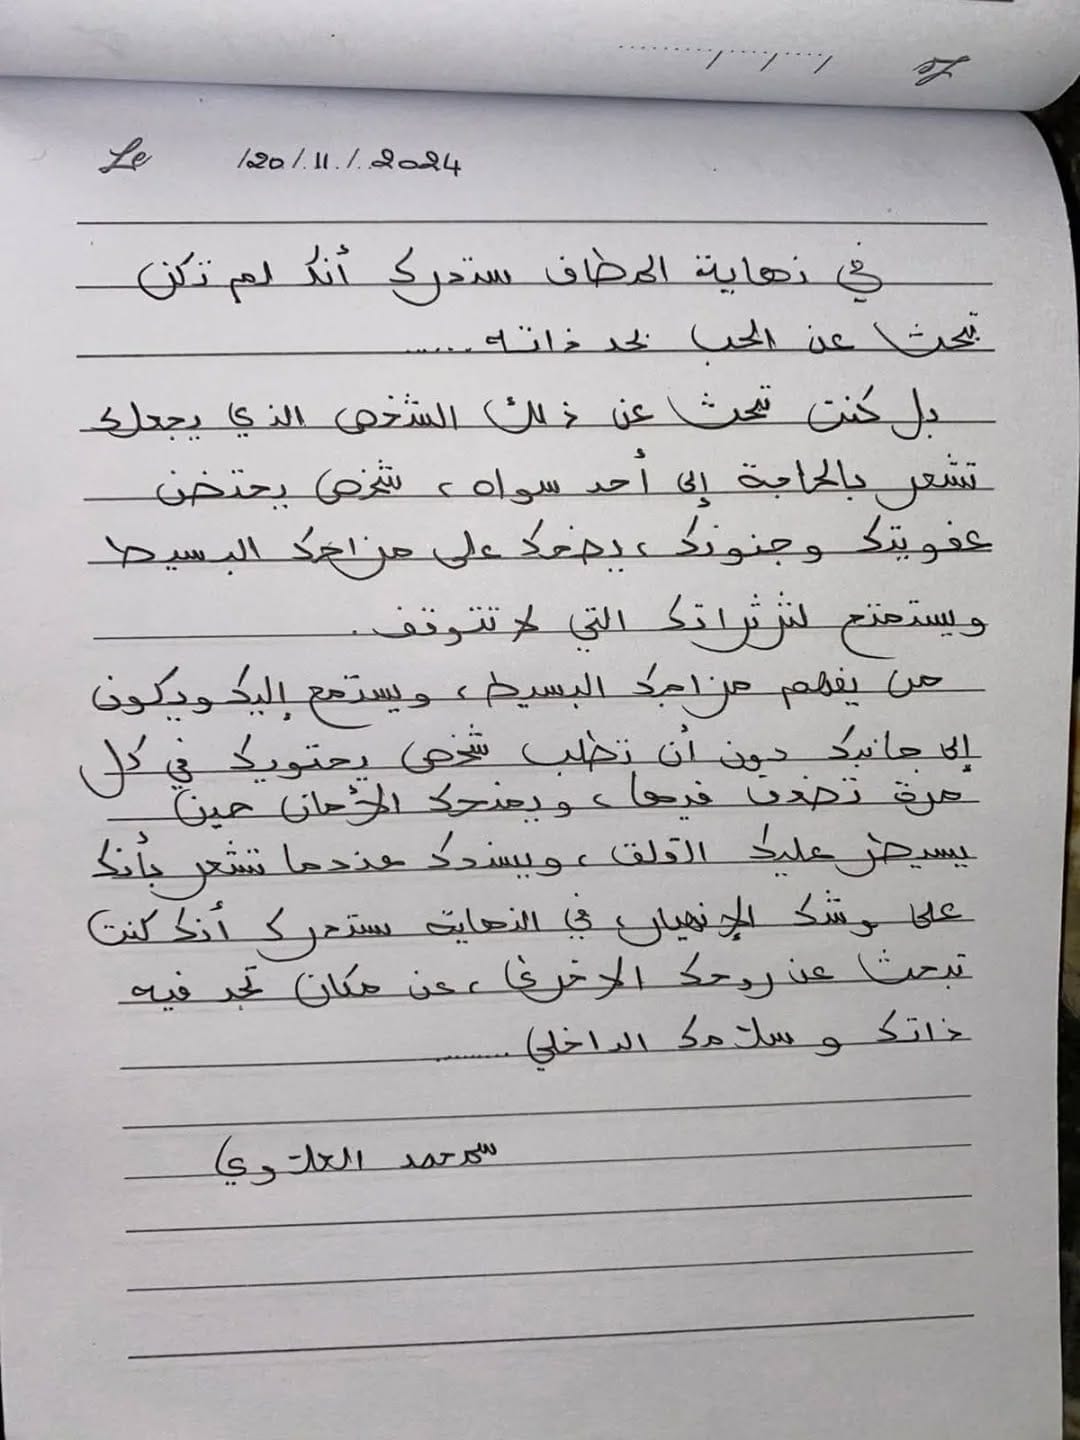 Le
Le 20/11/2024
في نهاية المطاف ستدرك أنك لم تكن
تبحث عن الحب بحد ذاته......
بل كنت تبحث عن ذلك الشخص الذي يجعلك
تشعر بالحاجة إلى أحد سواه، شخص يحتضن
عفويتك وجنونك، يضحك على مزاحك البسيط
ويستمتع لثرثراتك التي لا تتوقف.
من يفهم مزاجك البسيط، ويستمع إليك ويكون
إلى جانبك دون أن تطلب شخص يحتويك في كل
مرة تضعف فيها، ويمنحك الأمان حين
يسيطر عليك القلق، ويسندك عندما تشعر بأنك
على وشك الإنهيار، في النهاية ستدرك أنك كنت
تبحث عن روحك الاخرى، عن مكان تجد فيه
ذاتك وسلامك الداخلي.........
العلاوي